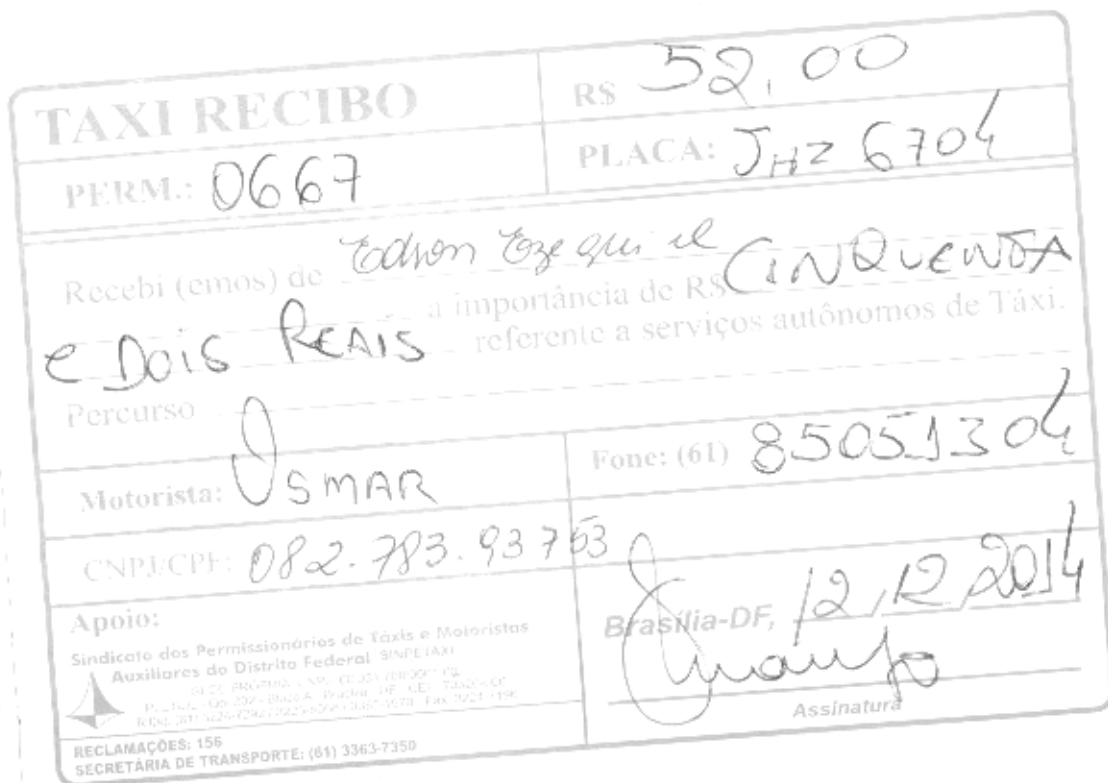 TAXI RECIBO
R$ 52,00
PERM.: 0667
PLACA: JHZ 6704
Recebi (emos) de Edson Ezequiel
a importância de R$ CINQUENTA
e DOIS REAIS referente a serviços autônomos de Táxi.
Percurso
Motorista: OSMAR
Fone: (61) 85051304
CNPJ/CPF: 082.783.93753
Apoio:
Sindicato dos Permissionários de Táxis e Motoristas
Auxiliares do Distrito Federal SINPETAXI
Brasília-DF, 12/12/2014
Assinatura
RECLAMAÇÕES: 156
SECRETÁRIA DE TRANSPORTE: (61) 3363-7350